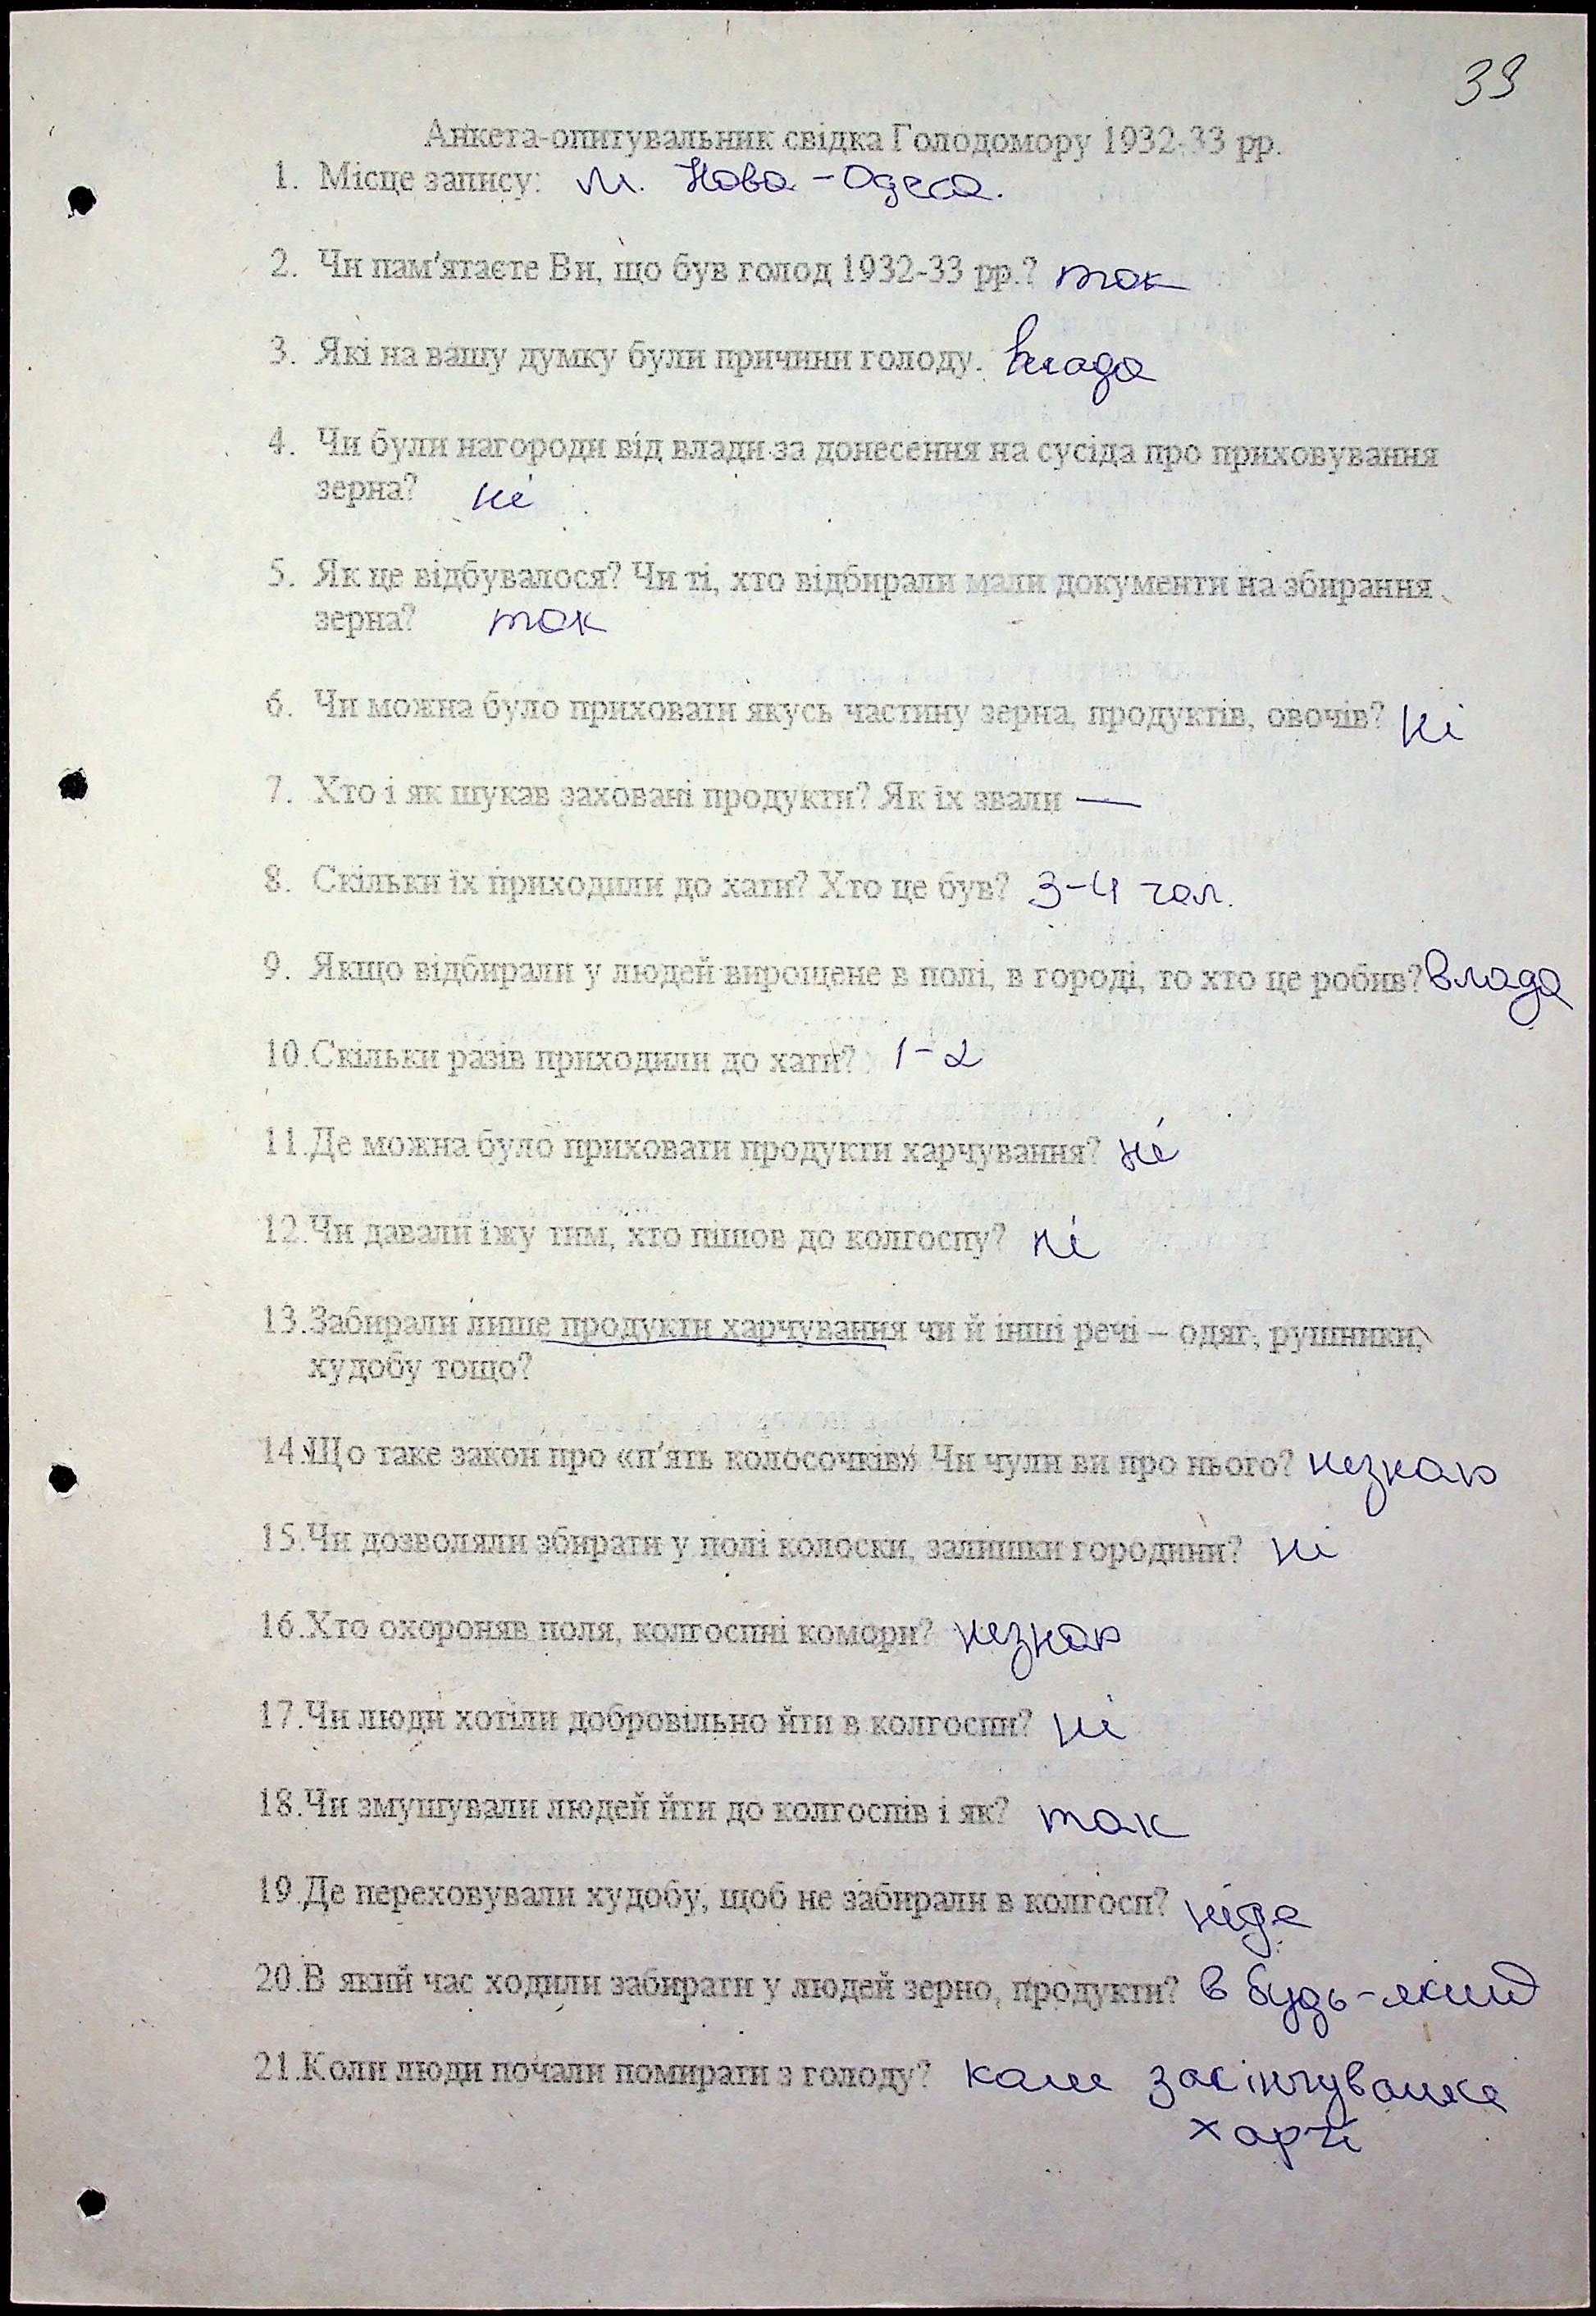 39
Анкета-опитувальник свідка Голодомору 1932-33 рр.
1. Місце запису: м. Нова-Одеса.
2. Чи пам'ятаєте Ви, що був голод 1932-33 рр.? так
3. Які на вашу думку були причини голоду. влада
4. Чи були нагороди від влади за донесення на сусіда про приховування
зерна? ні
5. Як це відбувалося? Чи ті, хто відбирали мали документи на збирання
зерна? так
6. Чи можна було приховати якусь частину зерна, продуктів, овочів? ні
7. Хто і як шукав заховані продукти? Як їх звали —
8. Скільки їх приходили до хати? Хто це був? 3-4 чол.
9. Якщо відбирали у людей вирощене в полі, в городі, то хто це робив? влада
10. Скільки разів приходили до хати? 1-2
11. Де можна було приховати продукти харчування? ні
12. Чи давали їжу тим, хто пішов до колгоспу? ні
13. Забирали лише продукти харчування чи й інші речі – одяг, рушники,
худобу тощо?
14. Що таке закон про «п'ять колосочків» Чи чули ви про нього? незнаю
15. Чи дозволяли збирати у полі колоски, залишки городини? ні
16. Хто охороняв поля, колгоспні комори? незнаю
17. Чи люди хотіли добровільно йти в колгоспи? ні
18. Чи змушували людей йти до колгоспів і як? так
19. Де переховували худобу, щоб не забирали в колгосп? ніде
20. В який час ходили забирати у людей зерно, продукти? в будь-який
21. Коли люди почали помирати з голоду? коли
харчі